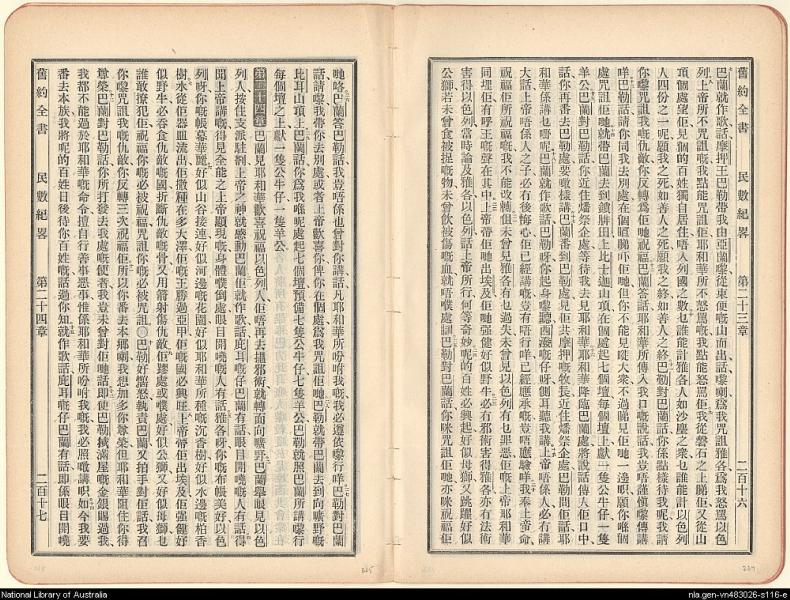 舊約全書 民數紀畧 第二十三章 二百十六
巴蘭就作歌話摩押王巴勒帶我由亞蘭嚟從東便嘅山而出話嚟喇爲我咒詛雅各爲我怒罵以色
列上帝所不咒詛嘅我點能咒詛佢耶和華所不怒罵嘅我點能怒罵佢我從磐石之上睇佢又從山
頂個處望佢見個的百姓獨自居住唔入列國之數乜誰能計雅各人如沙塵之衆乜誰能計以色列
人四份之一呢願我之死如善人之死願我之終如善人之終巴勒對巴蘭話你係點樣待我呢我請
你嚟咒詛我嘅仇敵你反轉爲佢哋祝福巴蘭答話耶和華所傳入我口嘅說話我豈唔謹愼嚟傳講
咩巴勒話請你同我去別處在個𠺢睇吓佢哋但你不能見嗮大衆不過睇見佢哋一邊啫願你喺個
處咒詛佢哋就帶巴蘭去到鎖腓田上比士迦山頂在個處起七個壇每個壇上獻一隻公牛仔一隻
羊公巴蘭對巴勒話你近住燔祭企處等待我去見耶和華耶和華降臨巴蘭處將說話傳入佢口中
話你再番去巴勒處要噉樣講巴蘭番到巴勒處見佢共摩押嘅牧長近住燔祭企處巴勒問佢話耶
和華係講乜嘢呢巴蘭就作歌話巴勒呀你起身嚟聽西潑嘅仔呀側耳聽我講上帝唔係人必有講
大話上帝唔係人之子必有後悔心佢已經講嘅豈有唔行咩佢已經應承嘅豈唔應驗咩我奉上帝命
祝福佢所祝福嘅我不能改轉佢未曾見雅各有乜過失未曾見以色列有乜罪惡佢嘅上帝耶和華
同埋佢有呼王嘅聲在其中上帝帶佢哋出埃及佢哋强健好似野牛必冇邪術害得雅各亦冇法術
害得以色列當時論及雅各以色列話上帝所行何等奇妙呢的百姓必興起好似母獅又跳躍好似
公獅若未曾食被捉嘅物未曾飲被傷嘅血就唔瞓處訓巴勒對巴蘭話你咪咒詛佢哋亦咪祝福佢
舊約全書 民數紀畧 第二十四章 二百十七
哋咯巴蘭答巴勒話我豈唔係也曾對你講話凡耶和華所吩咐我嘅我必遵依嚟行咩巴勒對巴蘭
話請嚟我帶你去別處或者上帝歡喜你俾你在個處爲我咒詛佢哋巴勒就帶巴蘭去到向曠野嘅
比耳山頂上巴蘭對巴勒話你爲我喺呢處起七個壇預備七隻公牛仔七隻羊公巴勒就照巴蘭所講嚟行
每個壇之上獻一隻公牛仔一隻羊公
第二十四章 巴蘭見耶和華歡喜祝福以色列人佢唔再去搵邪術就轉面向曠野巴蘭舉眼見以色
列人按住支派駐劄上帝之神就感動巴蘭佢就作歌話庇耳嘅仔巴蘭有話眼目開嘵嘅人有話得
聞上帝講嘅得見全能之上帝顯現嘅身體嘆倒處眼目開嘵嘅人有話雅各呀你嘅布帳美好以色
列呀你嘅帳幕華麗好似山谷接連好似河邊嘅花園好似耶和華所種嘅沉香樹好似水邊嘅柏香
樹水從佢器皿流出佢撒種在多大澤佢王勝過亞甲佢嘅國必興旺上帝帶佢出埃及佢强健好
似野牛必吞食仇敵嘅國折斷仇敵嘅骨又用箭射傷仇敵佢踎處或嘆處好似公獅又好似母獅乜
誰敢撩犯佢祝福你嘅必被祝福咒詛你嘅必被咒詛巴勒好惱怒執責巴蘭又拍手對佢話我召
你嚟咒詛我嘅仇敵你反轉三次祝福佢所以你番去本鄕喇我想加多你尊榮但耶和華阻住你得
尊榮巴蘭對巴勒話你所打發去我處嘅使者我豈未曾對佢哋話即使巴勒將滿屋嘅金銀賜過我
我都不能過於耶和華嘅命令擅自行善事惡事惟係耶和華吩咐我嘅我必照嘅講呮如今我要
番去本族我將呢的百姓日後待你百姓嘅話過你知就作歌話庇耳嘅仔巴蘭有話即係眼目開嘵
National Library of Australia
nla.gen-vn483026-s116-e